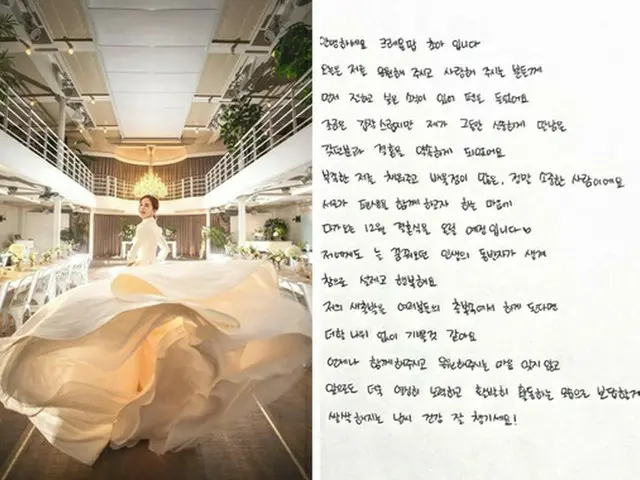 안녕하세요 크레용팝 초아 입니다
오늘은 저를 응원해 주시고 사랑해 주시는 분들께
먼저 전하고 싶은 소식이 있어 펜을 들었어요
조금은 갑작스럽지만 제가 그동안 소중하게 만남을
갖던분과 결혼을 약속하게 되었어요
부족한 저를 채워주고 배울점이 많은, 정말 소중한 사람이에요
서로가 평생을 함께 하고자 하는 마음에
다가오는 12월 결혼식을 올릴 예정입니다
저에게도 늘 꿈꿔오던 인생의 동반자가 생겨
참으로 설레고 행복해요
저의 새출발을 여러분들의 축복속에서 하게 된다면
더할 나위 없이 기쁠것 같아요
언제나 함께해주시고 응원해주시는 마음 잊지 않고
앞으로도 더욱 열심히 노력하고 활발히 활동하는 모습으로 보답할게
쌀쌀해지는 날씨 건강 잘 챙기세요!